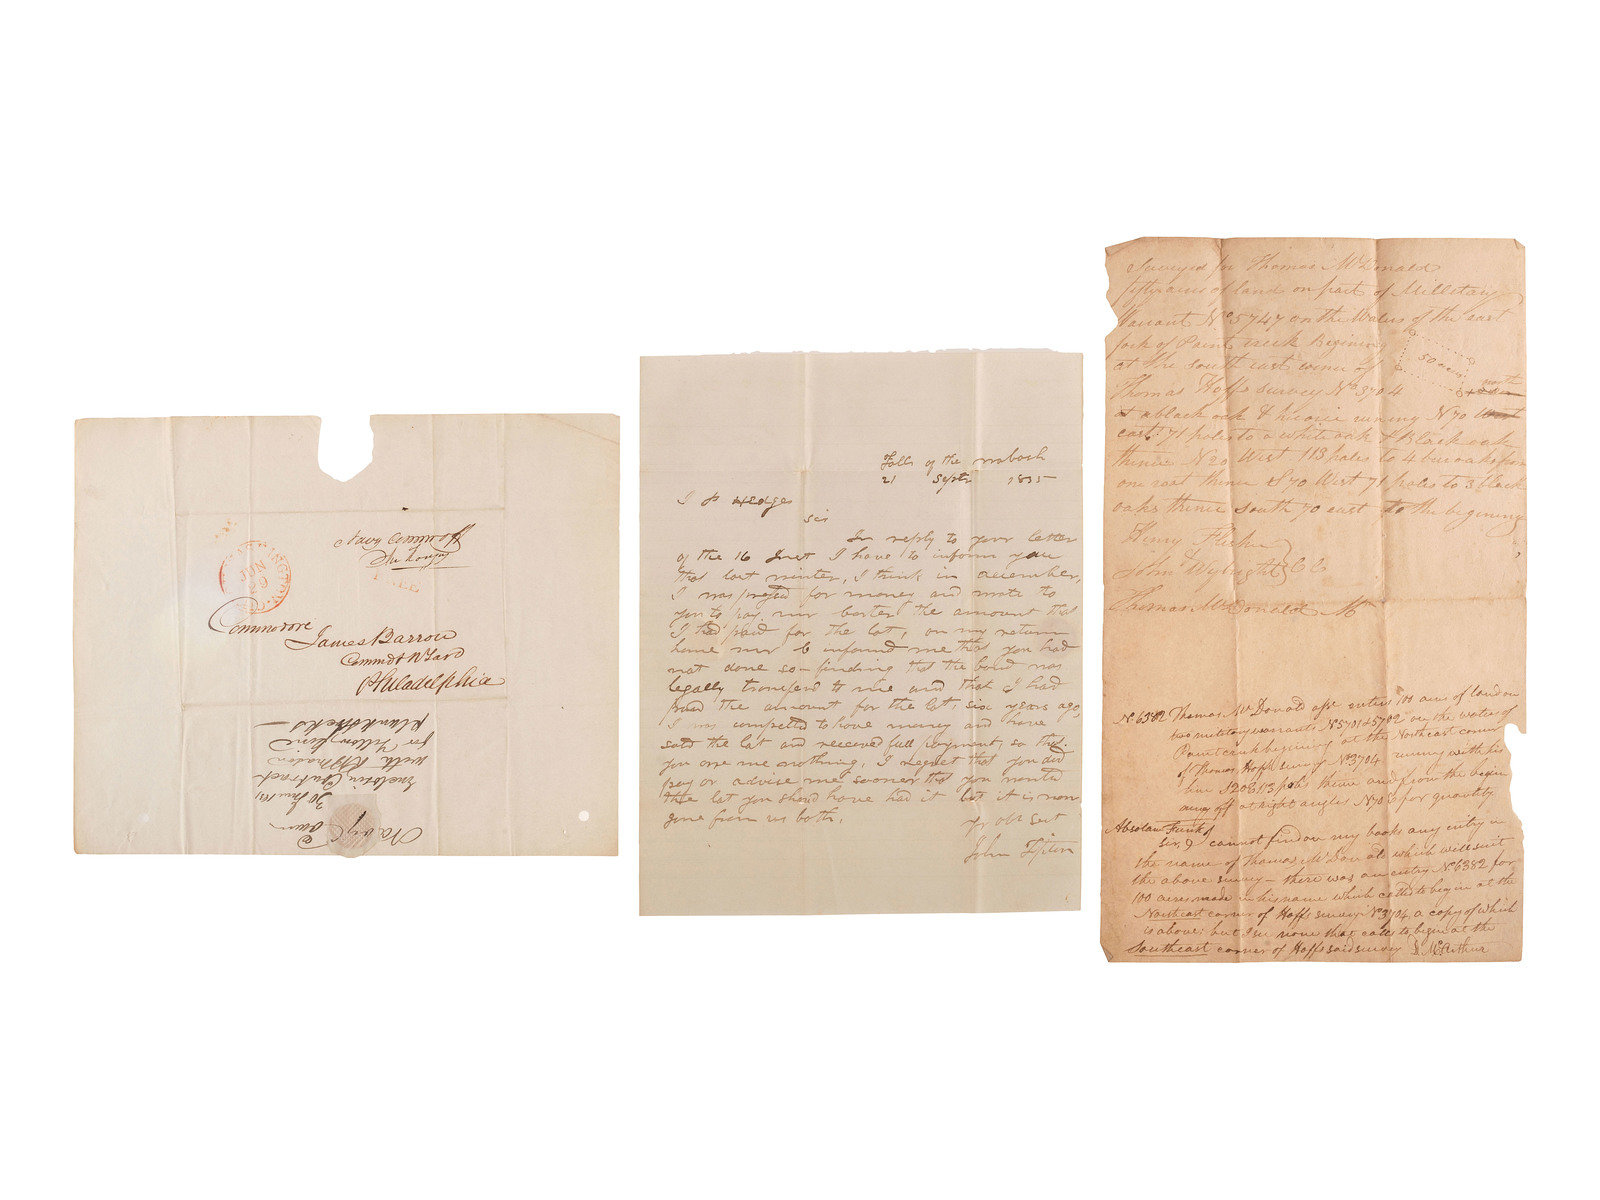 WASHINGTON
JUN
29
FREE
Navy Commrs
Commodore
James Barron
Commdt N Yard
Philadelphia
Navy Comrs
30 June
Enclosing Contract
with
for Yellow pine
Plank stocks
Falls of the wabash
21 Septr 1835
J P Hedges
sir
In reply to your letter
of the 16 Inst I have to inform you
that last winter, I think in december,
I was pressed for money and wrote to
you to pay mr the amount that
I had paid for the lot, on my return
home mr informed me that you had
not done so finding that the bond was
legally transferd to me and that I had
paid the amount for the lot, six years ago,
I was compelled to have money and have
sold the lot and received full payment, so that
you owe me nothing, I regret that you did
pay or advise me sooner that you wanted
the lot you should have had it but it is now
gone from us both.
yr obt sert
John Tipton
Surveyed for Thomas McDonald
fifty acres of land on part of Millitary
Warrant No 5747 on the Waters of the east
fork of Paint creek Begining
at the south east corner of
50 acres
Thomas Hoffs survey No 3704
north
at a black oak & hicorie runing N 70
east 71 poles to a white oak & Black oak
thence N 20 West 113 poles to 4 buroaks from
one root thence S 70 West 71 poles to 3 black
oaks thence south 70 east to the begining
Henry
John CC
Thomas McDonald M
No 6382 Thomas McDonald enters 100 acres of land on
two military warrants No 5701 & 5702 on the water of
Paint creek begining at the Northeast corner
of Thomas Hoffs survey No 3704 running with his
line S 20 E 113 poles thence and from the begin
ning off at right angles N 70 E for quantity
Absolam Funk
Sir, I cannot find on my books any entry in
the name of Thomas McDonald which will suit
the above survey - there was an entry No 6382 for
100 acres made in his name which calls to begin at the
Northeast corner of Hoffs survey No 3704, a copy of which
is above; but I see none that calls to begin at the
Southeast corner of Hoffs said survey D. McArthur